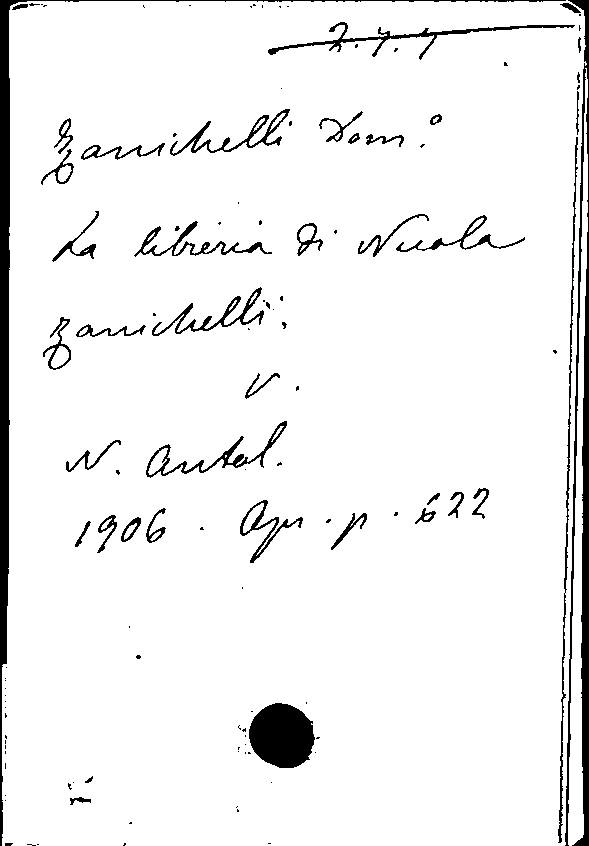 2.7.7
Zanichelli Dom.º
La libreria di Nicola
Zanichelli.
V.
N. Antol.
1906. Apr. p. 622